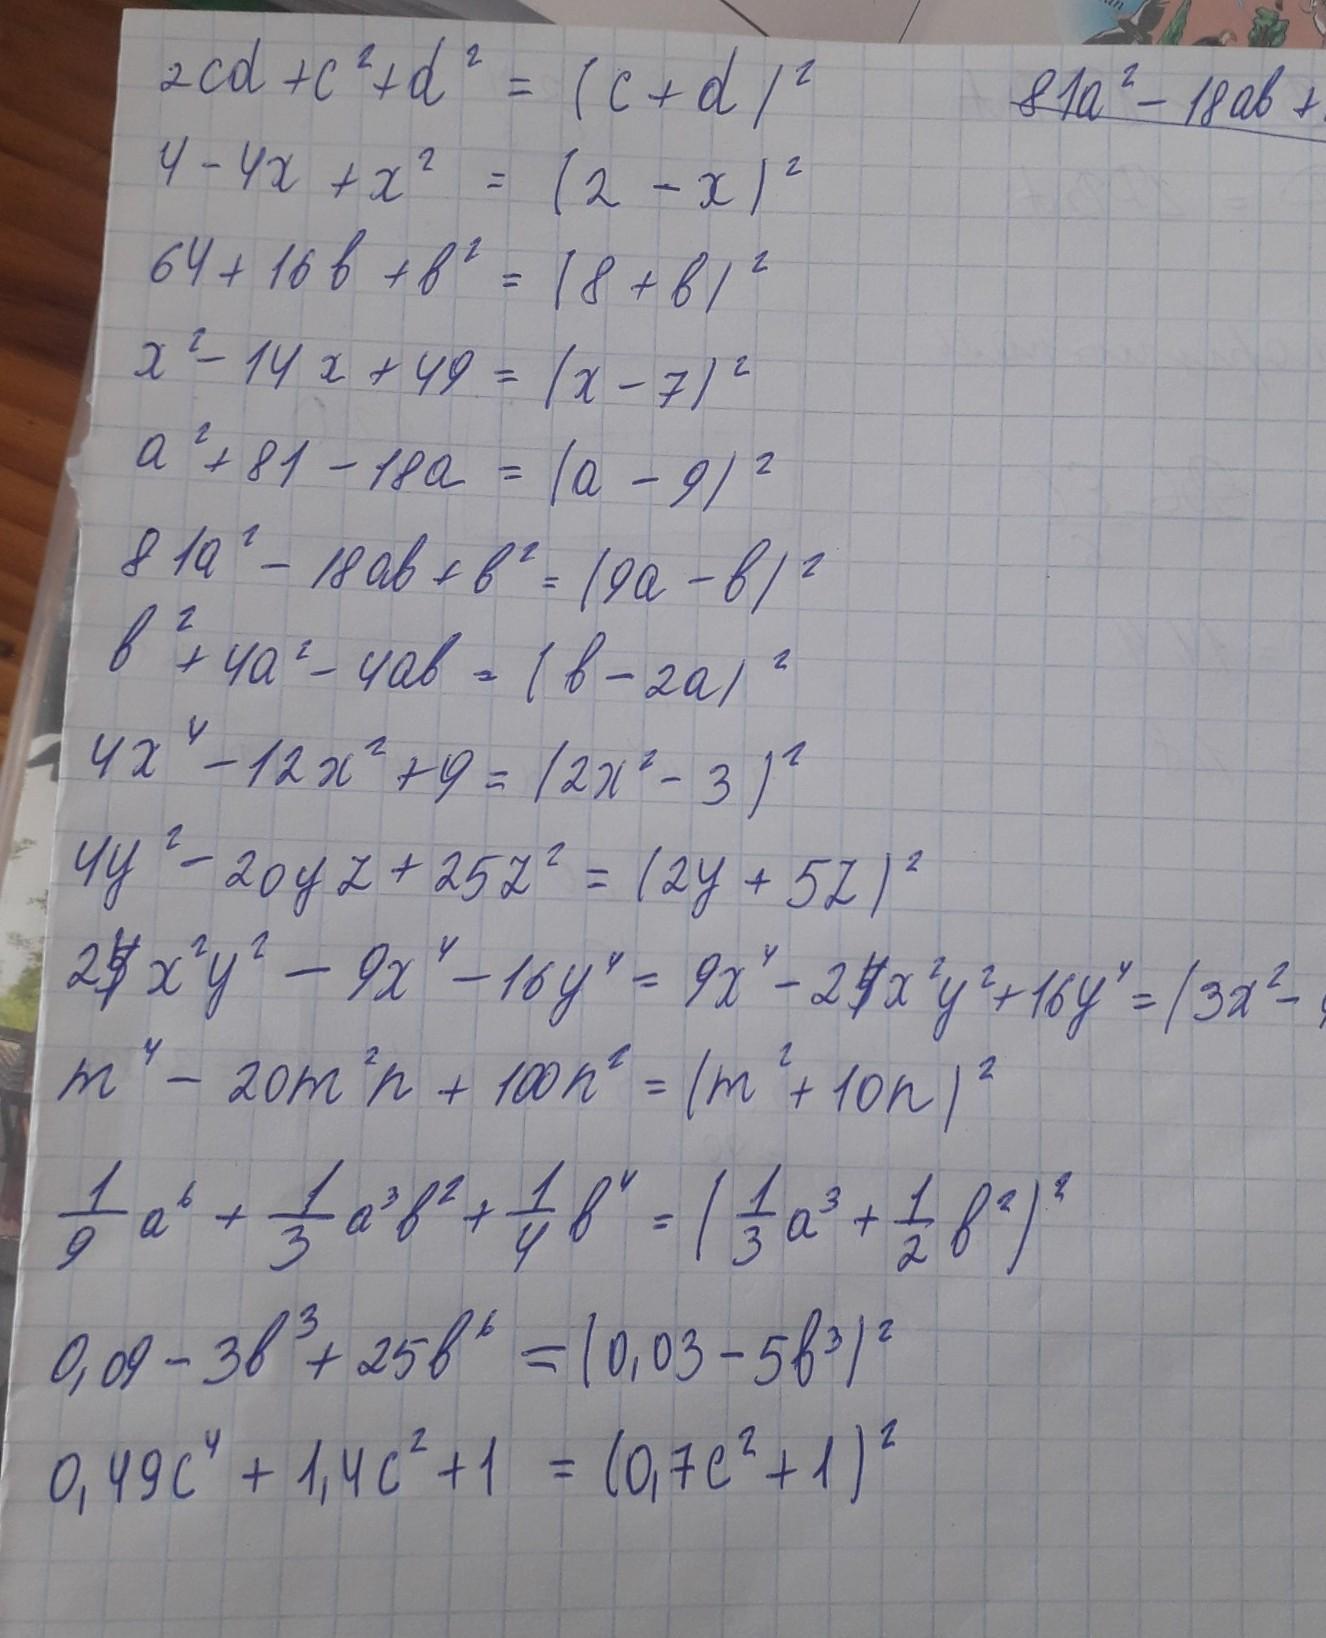 2cd + c² + d² = (c + d)²
81a² - 18ab +
4 - 4x + x² = (2 - x)²
64 + 16b + b² = (8 + b)²
x² - 14x + 49 = (x - 7)²
a² + 81 - 18a = (a - 9)²
81a² - 18ab + b² = (9a - b)²
b² + 4a² - 4ab = (b - 2a)²
4x⁴ - 12x² + 9 = (2x² - 3)²
4y² - 20yz + 25z² = (2y + 5z)²
24x²y² - 9x⁴ - 16y⁴ = 9x⁴ - 24x²y² + 16y⁴ = (3x² -
m⁴ - 20m²n + 100n² = (m² + 10n)²
1/9 a⁶ + 1/3 a³b² + 1/4 b⁴ = (1/3 a³ + 1/2 b²)²
0,09 - 3b³ + 25b⁶ = (0,03 - 5b³)²
0,49c⁴ + 1,4c² + 1 = (0,7c² + 1)²